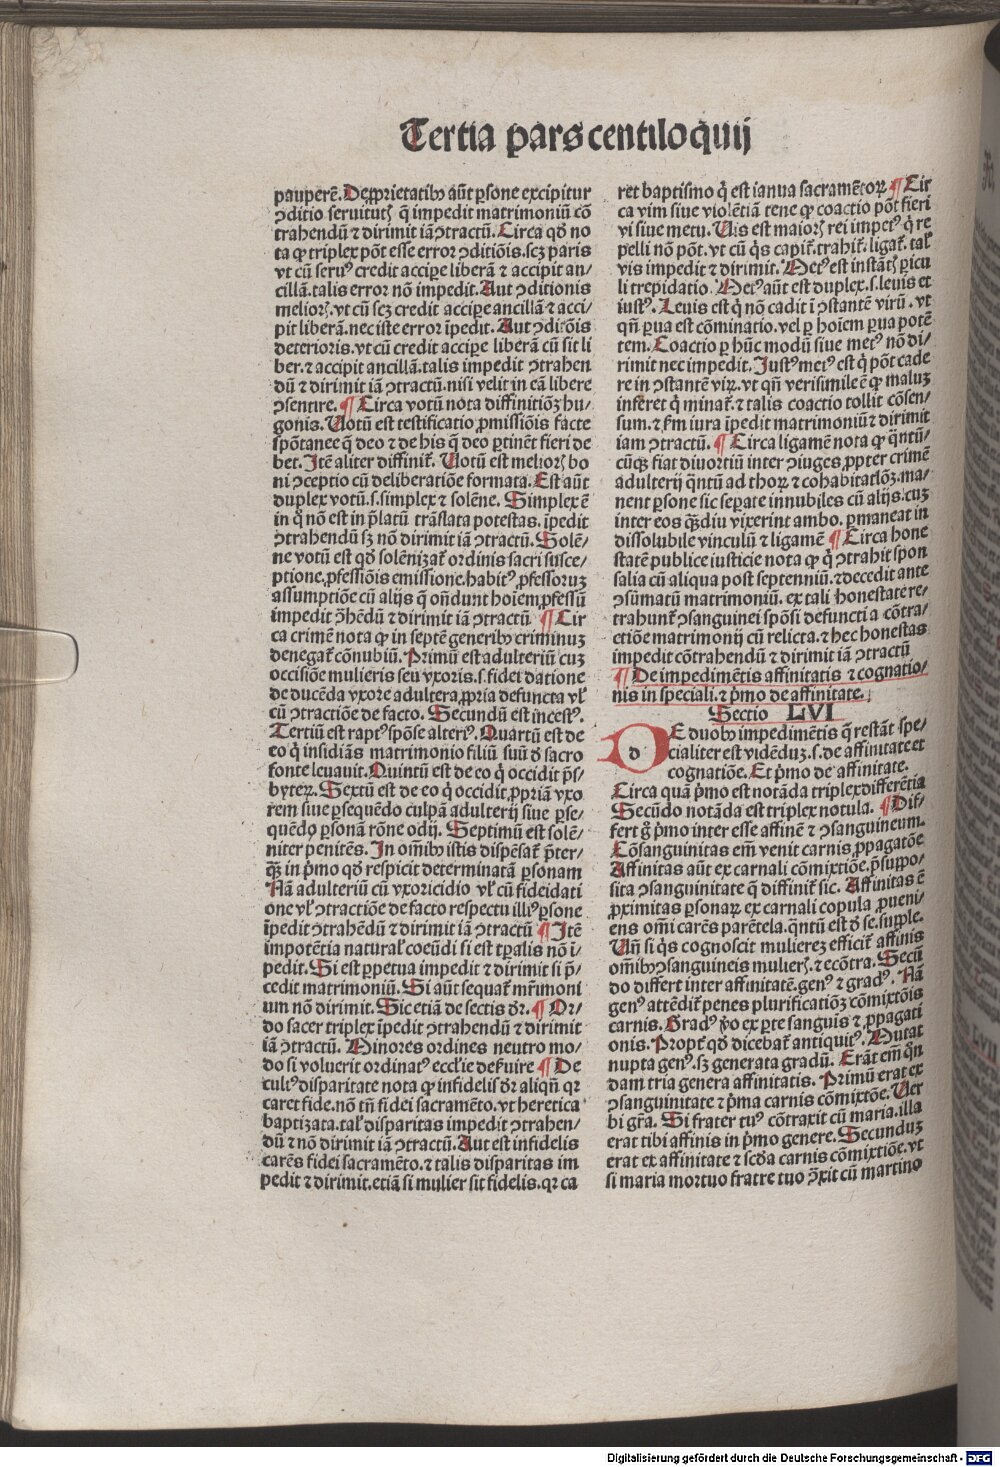 Tertia pars centiloquij
pauperē. De ꝓprietatibꝰ aūt ꝑsone excipitur
ꝯditio seruitutꝭ q̄ impedit matrimoniū cō
trahendū ⁊ dirimit iā ꝯtractū. Circa qḋ no
ta ꝙ triplex pōt esse error ꝯditiōis. scꝫ paris
vt cū seruꝰ credit accipe liberā ⁊ accipit an/
cillā. talis error nō impedit. Aut ꝯditionis
meliorꝭ. vt cū scꝫ credit accipe ancillā ⁊ acci/
pit liberā. nec iste error īpedit. Aut ꝯditōis
deterioris. vt cū credit accipe liberā cū sit li
ber. ⁊ accipit ancillā. talis impedit ꝯtrahen
dū ⁊ dirimit iā ꝯtractū. nisi velit in eā libere
ꝯsentire. ¶ Circa votū nota diffinitiōꝫ hu/
gonis. Uotū est testificatio ꝓmissiōis facte
spōtanee q̄ deo ⁊ de his q̄ deo ꝑtinēt fieri de
bet. Itē aliter diffinit̄. Uotū est meliorꝭ bo
ni ꝯceptio cū deliberatiōe formata. Est aūt
duplex votū. s. simplex ⁊ solēne. Simplex ē
in q̊ nō est in p̄latū trāslata potestas. īpedit
ꝯtrahendū sꝫ nō dirimit iā ꝯtractū. Solē/
ne votū est qḋ solēnizat̄ ordinis sacri susce/
ptione, ꝓfessiōis emissione. habitꝰ ꝓfessoruꝫ
assumptiōe cū alijs q̄ oñdunt hoīem ꝓfessū
impedit ꝯ̄hēdū ⁊ dirimit iā ꝯtractū ¶ Cir
ca crimē nota ꝙ in septē generibꝰ criminuꝫ
denegat̄ cōnubiū. Primū est adulteriū cuꝫ
occisiōe mulieris seu vxoris. s. fidei datione
de ducēda vxore adultera, ꝓpria defuncta vl̄
cū ꝯtractiōe de facto. Secundū est incestꝰ.
Tertiū est raptꝰ spōse alteriꝰ. Quartū est de
eo q̇ insidiās matrimonio filiū suū ḋ sacro
fonte leuauit. Quintū est de eo q̇ occidit p̄s/
byteꝝ. Sextū est de eo q̇ occidit, ꝓpriā vxo
rem siue ꝑsequēdo culpā adulterij siue ꝑse/
quēdo ꝑsonā rōne odij. Septimū est solē/
niter penitēs. In oīmbꝰ istis dispēsat̄ p̄ter/
q̄ꝫ in ṗmo qḋ respicit determinatā ꝑsonam
Nā adulteriū cū vxoricidio vl̄ cū fidei dati
one vl̄ ꝯtractiōe de facto respectu illiꝰ ꝑsone
īpedit ꝯtrahēdū ⁊ dirimit iā ꝯtractū ¶ Itē
impotētia natural̄ coeūdi si est tp̄alis nō ī/
pedit. Si est ꝑpetua impedit ⁊ dirimit si p̄/
cedit matrimoniū. Si aūt sequat̄ mr̄imoni
um nō dirimit. Sic etiā de sectis dr̄. ¶ Or/
do sacer triplex īpedit ꝯtrahendū ⁊ dirimit
iā ꝯtractū. Minores ordines neutro mo/
do si voluerit ordinatꝰ eccl̄ie deẜuire ¶ De
cultꝰ disparitate nota ꝙ infidelis dr̄ aliqñ qꝛ
caret fide. nō tñ fidei sacramēto. vt heretica
baptizata. tal̄ disparitas impedit ꝯtrahen/
dū ⁊ nō dirimit iā ꝯtractū. Aut est infidelis
carēs fidei sacramēto. ⁊ talis disparitas im
pedit ⁊ dirimit. etiā si mulier sit fidelis. qꝛ ca
ret baptismo q̇ est ianua sacramētoꝝ ¶ Cir
ca vim siue violētiā tene ꝙ coactio pōt fieri
vi siue metu. Uis est maiorꝭ rei impetꝰ q̇ re
pelli nō pōt. vt cū q̇s capit̄. trahit̄. ligat̄. tal̄
vis impedit ⁊ dirimit. Metꝰ est instātꝭ ꝑicu
li trepidatio. Metꝰ aūt est duplex. s. leuis et
iustꝰ. Leuis est q̇ nō cadit ī ꝯstantē virū. vt
qñ ꝑua est cōminatio. vel ꝑ hoīem ꝑua potē
tem. Coactio ꝑ hūc modū siue metꝰ nō di/
rimit nec impedit. Justꝰ metꝰ est q̇ pōt cade
re in ꝯstantē viꝝ. vt qñ verisimile ē ꝙ maluꝫ
inferet q̇ minat̄. ⁊ talis coactio tollit cōsen/
sum. ⁊ ẜm iura īpedit matrimoniū ⁊ dirimit
iam ꝯtractū. ¶ Circa ligamē nota ꝙ q̄ntū/
cūqꝫ fiat diuortiū inter ꝯiuges, ꝓpter crimē
adulterij q̄ntū ad thoꝝ ⁊ cohabitatiōꝫ. ma/
nent ꝑsone sic seꝑate innubiles cū alijs. cuꝫ
inter eos q̄ꝫdiu vixerint ambo. ꝑmaneat in
dissolubile vinculū ⁊ ligamē ¶ Circa hone
statē publice iusticie nota ꝙ q̇ ꝯtrahit spon
salia cū aliqua post septenniū. ⁊ decedit ante
ꝯsūmatū matrimoniū. ex tali honestate re/
trahunt̄ ꝯsanguinei spōsi defuncti a cōtra/
ctiōe matrimonij cū relicta. ⁊ hec honestas
impedit cōtrahendū ⁊ dirimit iā ꝯtractū
¶ De impedimētis affinitatis ⁊ cognatio/
nis in speciali. ⁊ ṗmo de affinitate.
Sectio LVI
DE duobꝰ impedimētis q̄ restāt spe/
cialiter est vidēduꝫ. s. de affinitate et
cognatiōe. Et ṗmo de affinitate.
Circa quā ṗmo est notāda triplex differētia
Secūdo notāda est triplex notula. ¶ Dif/
fert g̊ ṗmo inter esse affinē ⁊ ꝯsanguineum.
Cōsanguinitas em̄ venit carnis, ꝓpagatōe
Affinitas aūt ex carnali cōmixtiōe, p̄suppo/
sita ꝯsanguinitate q̄ diffinit̄ sic. Affinitas ē
ꝓximitas ꝑsonaꝝ ex carnali copula ꝓueni/
ens omī carēs parētela. q̄ntū est ḋ se. supple.
Uñ si q̇s cognoscit muliereꝫ efficit̄ affinis
oīmbꝰ ꝯsanguineis mulierꝭ. ⁊ ecōtra. Secū
do differt inter affinitatē. genꝰ ⁊ gradꝰ. Nā
genꝰ attēdit̄ penes plurificatiōꝫ cōmixtōis
carnis. Gradꝰ v̇o ex ꝑte sanguis ⁊ ꝓpagati
onis. Propt̄ qḋ dicebat̄ antiquitꝰ. Mutat
nupta genꝰ. sꝫ generata gradū. Erāt em̄ q̄n
dam tria genera affinitatis. Primū erat ex
ꝯsanguinitate ⁊ ṗma carnis cōmixtōe. Uer
bi gr̄a. Si frater tuꝰ cōtraxit cū maria. illa
erat tibi affinis in ṗmo genere. Secunduꝫ
erat ex affinitate ⁊ scḋa carnis cōmixtiōe. vt
si maria mortuo fratre tuo ꝯ̄xit cū martino
Digitalisierung gefördert durch die Deutsche Forschungsgemeinschaft - DFG